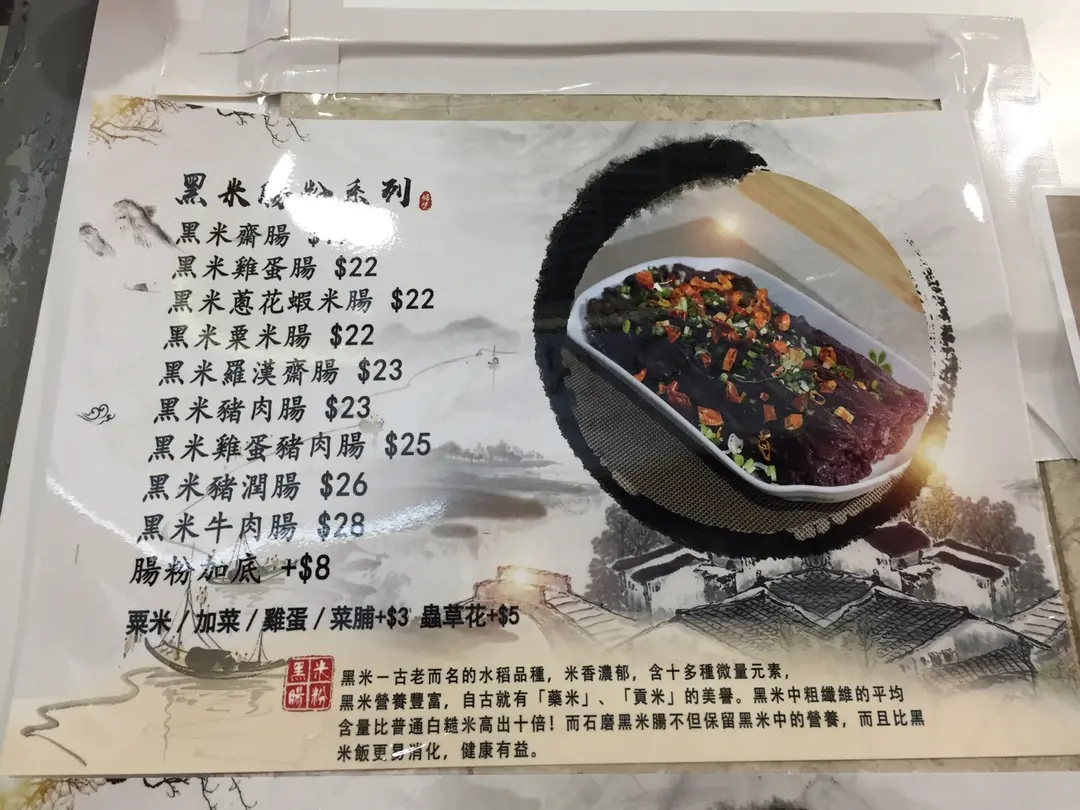 黑米腸粉系列
黑米齋腸
黑米雞蛋腸 $22
黑米蔥花蝦米腸 $22
黑米粟米腸 $22
黑米羅漢齋腸 $23
黑米豬肉腸 $23
黑米雞蛋豬肉腸 $25
黑米豬潤腸 $26
黑米牛肉腸 $28
腸粉加底 +$8
粟米/加菜/雞蛋/菜脯+$3 蟲草花+$5
黑米
腸粉
黑米一古老而名的水稻品種，米香濃郁，含十多種微量元素，
黑米營養豐富，自古就有「藥米」、「貢米」的美譽。黑米中粗纖維的平均
含量比普通白糙米高出十倍！而石磨黑米腸不但保留黑米中的營養，而且比黑
米飯更易消化，健康有益。